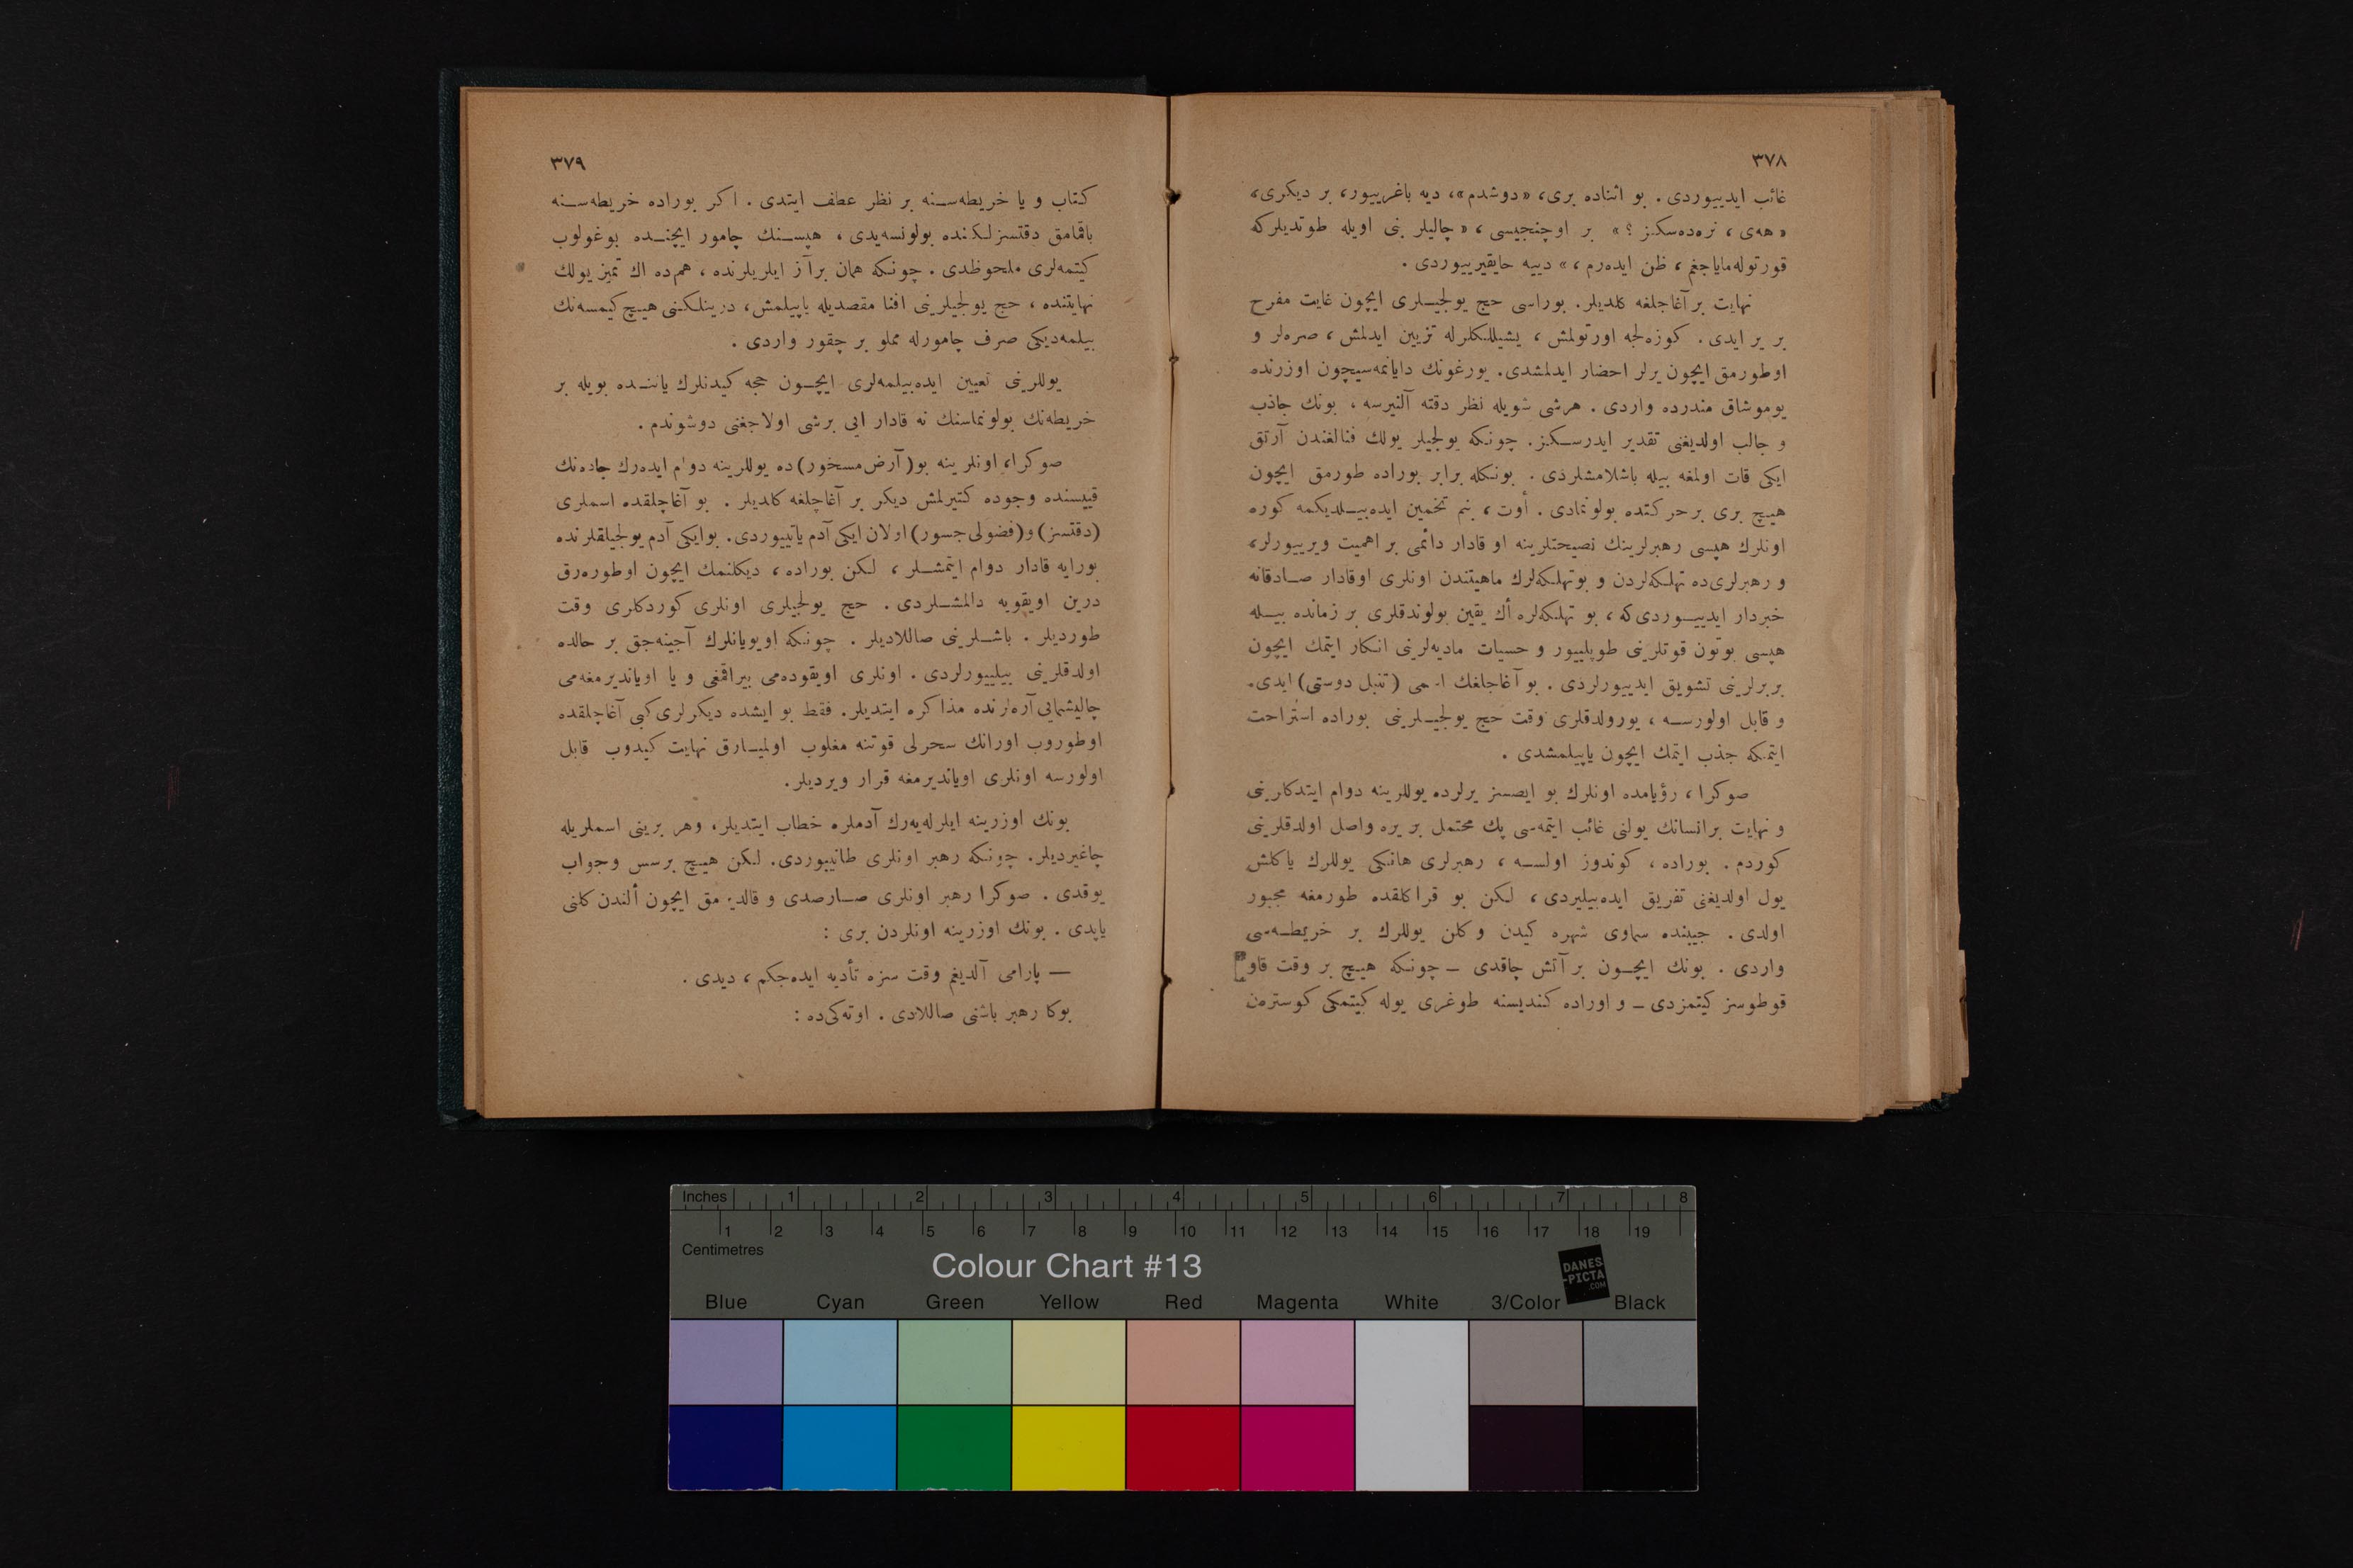 ٣٧٨
غائب ايدييوردی. بو اثناده بری، «دوشدم»، ديه باغرييور، بر ديكری،
«هه‌ی، نره‌ده‌سكز؟» بر اوچنجيسی، «چاليلر بنی اويله طوتديلركه
قورتوله‌ماياجغم، ظن ايده‌رم،» دييه حايقيرييوردی.
نهايت بر آغاجلغه كلديلر. بوراسی حج يولجيلری ايچون غايت مفرح
بر ير ايدی. كوزه‌لجه اورتولمش، يشيللكلرله تزيين ايدلمش، صره‌لر و
اوطورمق ايچون يرلر احضار ايدلمشدی. يورغونك دايانمه‌سيچون اوزرنده
يوموشاق مندرده واردی. هرشی شويله نظر دقته آلنيرسه، بونك جاذب
و جالب اولديغنی تقدير ايدرسكز. چونكه يولجيلر يولك فنالغندن آرتق
ايكی قات اولمغه بيله باشلامشلردی. بونكله برابر بوراده طورمق ايچون
هيچ بری بر حركتده بولونمادی. أوت، بنم تخمين ايده‌بيلديكمه كوره
اونلرك هپسی رهبرلرينك نصيحتلرينه او قادار دائمی بر اهميت ويرييورلر،
و رهبرلری‌ده تهلكه‌لردن و بوتهلكه‌لرك ماهيتندن اونلری اوقادار صادقانه
خبردار ايدييوردی‌كه، بو تهلكه‌لره أك يقين بولوندقلری بر زمانده بيله
هپسی بوتون قوتلرينی طوپلييور و حسيات ماديه‌لرينی انكار ايتمك ايچون
بربرلرينی تشويق ايدييورلردی. بو آغاجلغك اسمی (تنبل دوستی) ايدی.
و قابل اولورسه، يورولدقلری وقت حج يولجيلرينی بوراده استراحت
ايتمكه جذب ايتمك ايچون ياپيلمشدی.
صوكرا، رؤيامده اونلرك بو ايصسز يرلرده يوللرينه دوام ايتدكلرينی
و نهايت بر انسانك يولنی غائب ايتمه‌سی پك محتمل بر يره واصل اولدقلرينی
كوردم. بوراده، كوندوز اولسه، رهبرلری هانكی يوللرك ياكلش
يول اولديغنی تفريق ايده‌بيليردی، لكن بو قراكلقده طورمغه مجبور
اولدی. جيبنده سماوی شهره كيدن و كلن يوللرك بر خريطه‌سی
واردی. بونك ايچون بر آتش چاقدی ــ چونكه هيچ بر وقت قاو
قوطوسز كيتمزدی ــ و اوراده كنديسنه طوغری يوله كيتمكی كوستره‌ن
٣٧٩
كتاب و يا خريطه‌سنه بر نظر عطف ايتدی. اكر بوراده خريطه‌سنه
باقمامق دقتسزلكنده بولونسه‌يدی، هپسنك چامور ايچنده بوغولوب
كيتمه‌لری ملحوظدی. چونكه همان برآز ايلريلرنده، هم‌ده اك تميز يولك
نهايتنده، حج يولجيلرينی افنا مقصديله ياپيلمش، درينلكنی هيچ كيمسه‌نك
بيلمه‌ديكی صرف چامورله مملو بر چقور واردی.
يوللرينی تعيين ايده‌بيلمه‌لری ايچون حجه كيدنلرك ياننده بويله بر
خريطه‌نك بولونماسنك نه قادار ايی برشی اولاجغنی دوشوندم.
صوكرا، اونلر ينه بو (آرض مسحور) ده يوللرينه دوام ايده‌رك جاده‌نك
قييسنده وجوده كتيرلمش ديكر بر آغاجلغه كلديلر. بو آغاجلقده اسملری
(دقتسز) و (فضولی جسور) اولان ايكی آدم ياتييوردی. بوايكی آدم يولجيلقلرنده
بورايه قادار دوام ايتمشلر، لكن بوراده، ديكلنمك ايچون اوطوره‌رق
درين اويقويه دالمشلردی. حج يولجيلری اونلری كوردكلری وقت
طورديلر. باشلرينی صاللاديلر. چونكه اويويانلرك آجينه‌جق بر حالده
اولدقلرينی بيلييورلردی. اونلری اويقوده‌می بيراقمغی و يا اوياندیرمغه‌می
چاليشمايی آره‌لرنده مذاكره ايتديلر. فقط بو ايشده ديكرلری كبی آغاجلقده
اوطوروب اورانك سحرلی قوتنه مغلوب اولميارق نهايت كيدوب قابل
اولورسه اونلری اوياندیرمغه قرار ويرديلر.
بونك اوزرينه ايلرله‌يه‌رك آدملره خطاب ايتديلر، وهر برينی اسملريله
چاغيرديلر. چونكه رهبر اونلری طانييوردی. لكن هيچ برسس وجواب
يوقدی. صوكرا رهبر اونلری صارصدی و قالديرمق ايچون ألندن كلنی
ياپدی. بونك اوزرينه اونلردن بری:
— پارامی آلديغم وقت سزه تأديه ايده‌جكم، ديدی.
بوكا رهبر باشنی صاللادی. اوته‌كی‌ده:
Inches 1 2 3 4 5 6 7 8
1 2 3 4 5 6 7 8 9 10 11 12 13 14 15 16 17 18 19
Centimetres
Colour Chart #13
DANES
-PICTA
.COM
Blue Cyan Green Yellow Red Magenta White 3/Color Black